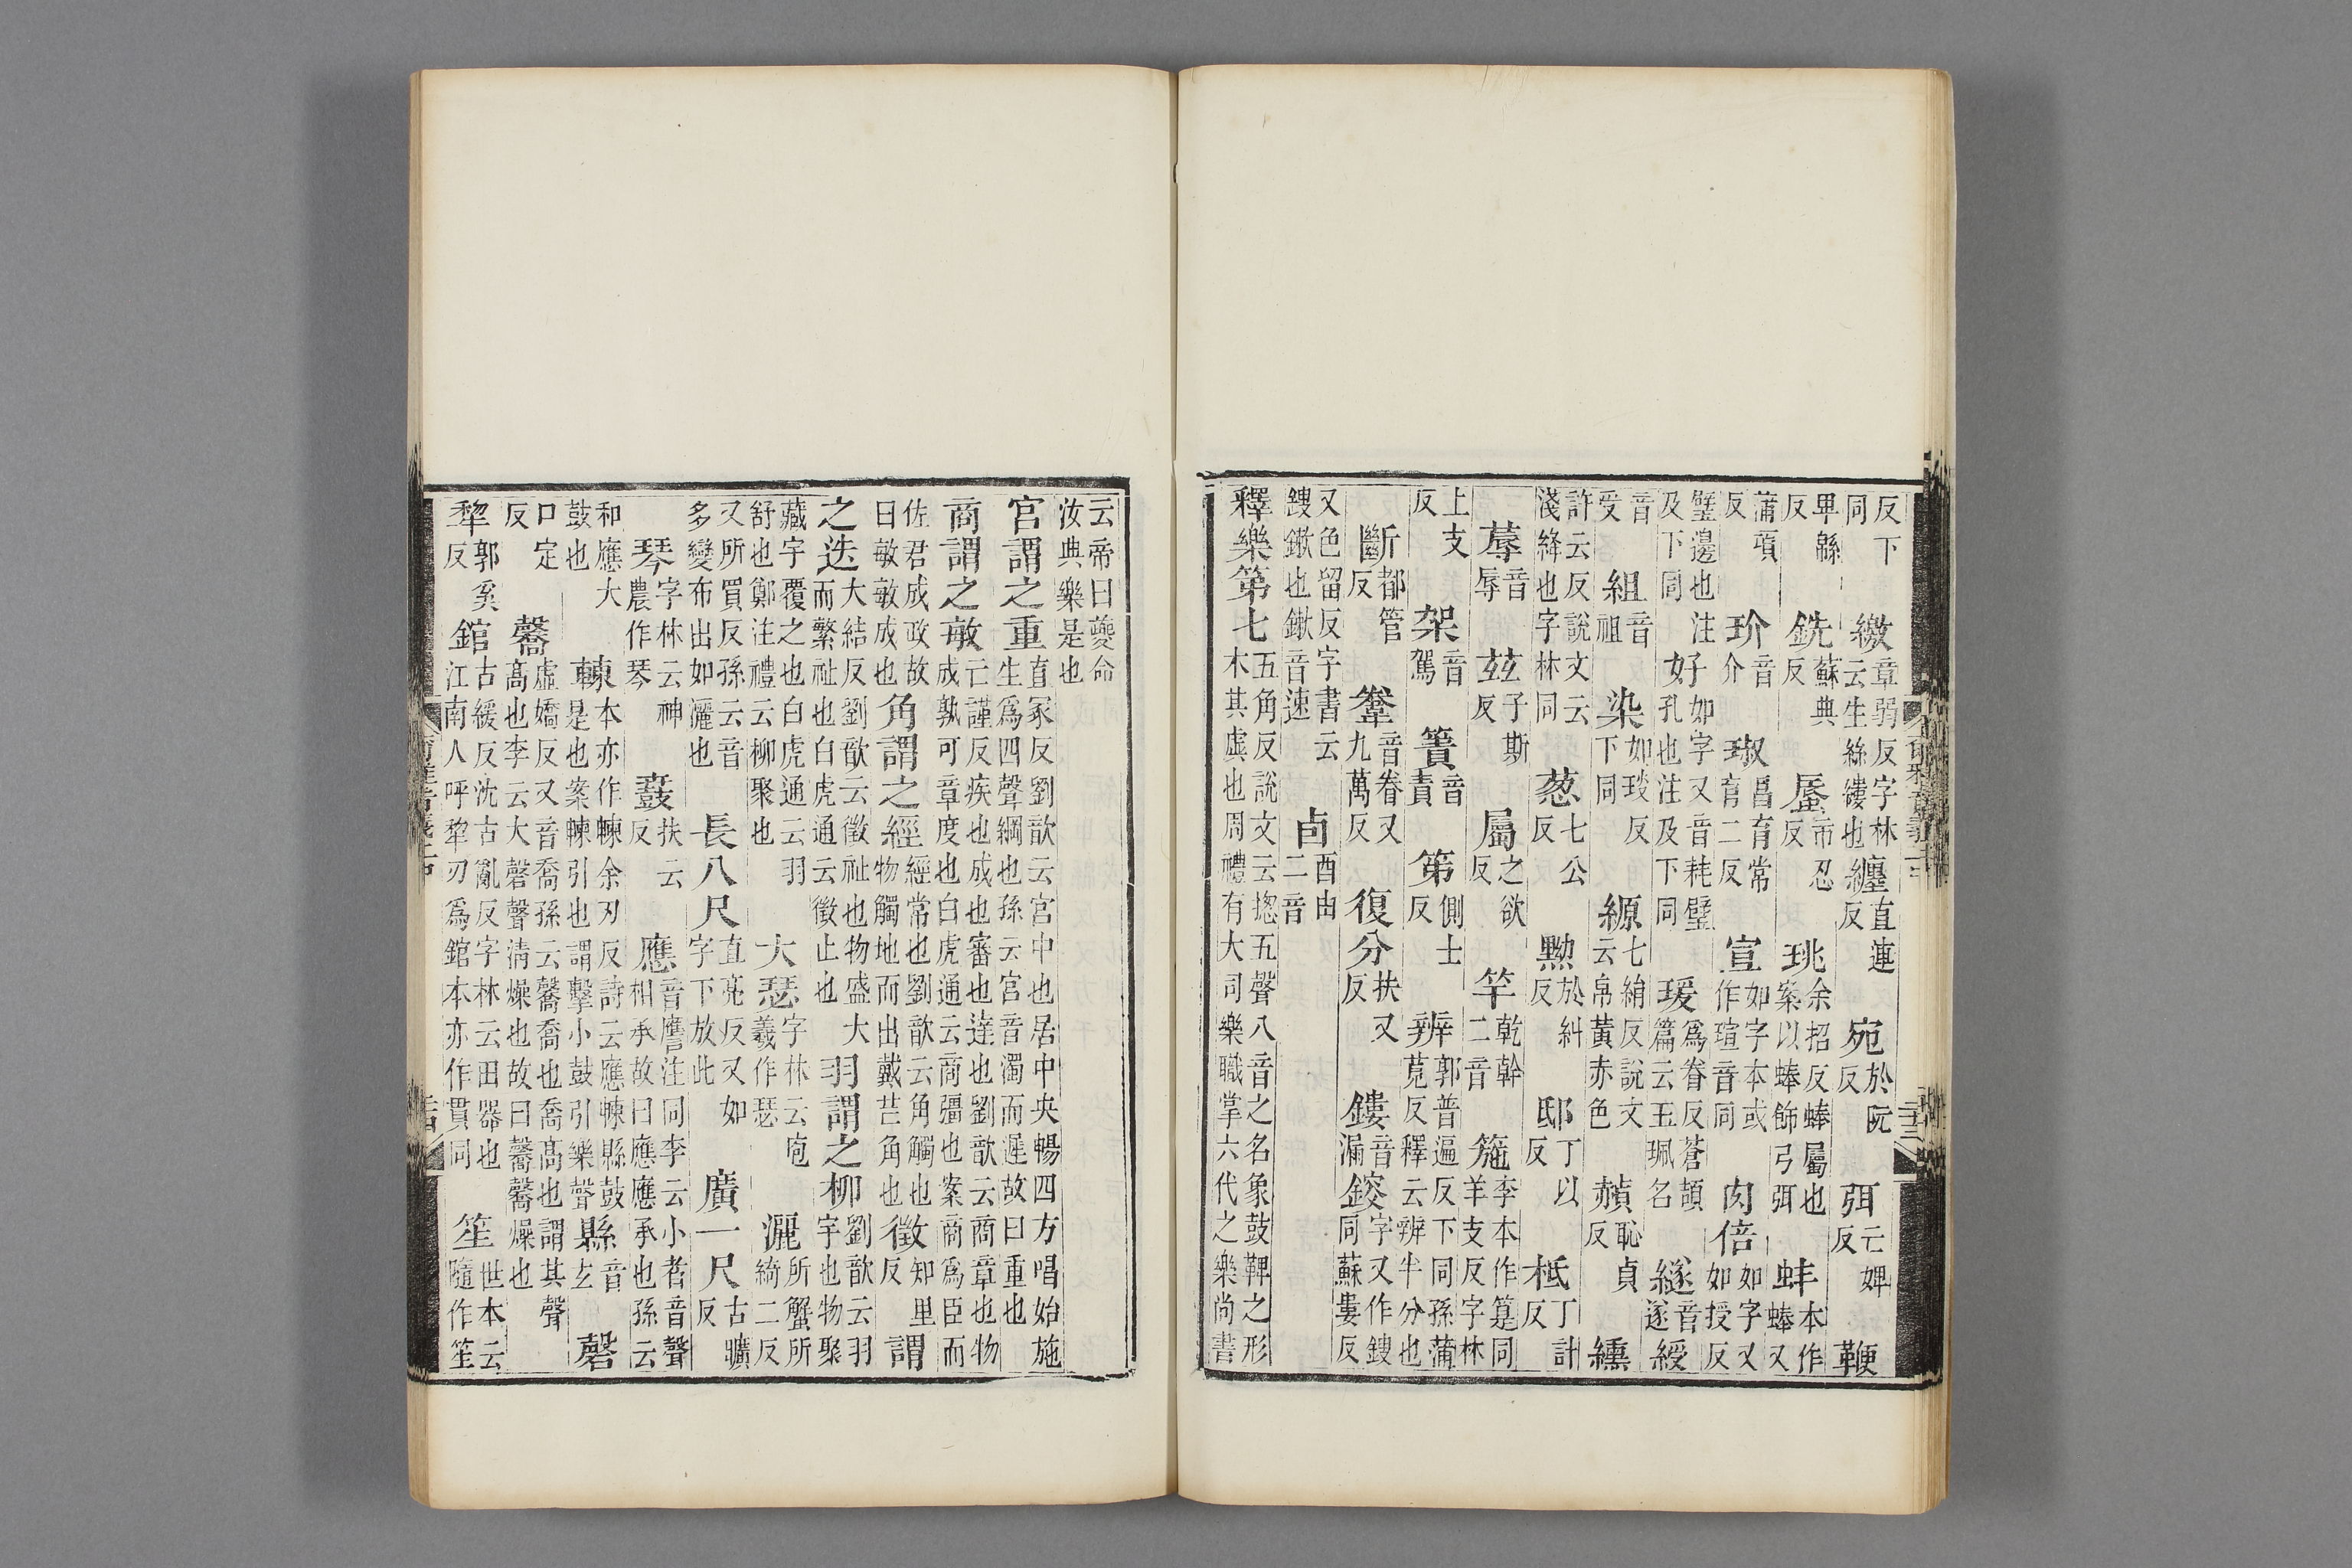 反下同繳章弱反字林云生絲縷也纏直連反宛於阮反弭亡婢反鞭
卑緜反銑蘇典反蜃市忍反珧余招反蜯屬也案以蜯飾弓弭蚌本作蜯又
蒲項反玠音介琡昌育常育二反宣如字本或作瑄音同肉倍如字又如授反
璧邊也注及下同好如字又音耗璧孔也注及下同瑗爲眷反蒼頡篇云玉珮名繸音遂綬
音受組音祖染如琰反下同縓七絹反說文云帛黃赤色赬恥貞反纁
許云反說文云淺絳也字林同葱七公反黝於糾反邸丁以反柢丁計反
蓐音辱茲子斯反屬之欲反竿乾幹二音箷李本作箟同羊支反字林
上支反架音駕簀音責第側士反辨郭普遍反下同孫蒲莧反釋云辨半分也
斷都管反韏音眷又九萬反復分扶又反鏤音漏鎪字又作鎪同蘇婁反
又色留反字書云鎪鏉也鏉音速卣酉由二音
釋樂第七五角反說文云揔五聲八音之名象鼓鞞之形木其虛也周禮有大司樂職掌六代之樂尚書
云帝曰夔命汝典樂是也
宮謂之重直冢反劉歆云宮中也居中央暢四方唱始施生爲四聲綱也孫云宮音濁而遲故曰重也
商謂之敏亡謹反疾也成也審也達也劉歆云商章也物成孰可章度也白虎通云商彊也案商爲臣而
佐君成政故曰敏敏成也角謂之經經常也劉歆云角觸也物觸地而出戴芒角也徵知里反謂
之迭大結反劉歆云徵祉也物盛大而繁祉也白虎通云徵止也羽謂之柳劉歆云羽宇也物聚
藏宇覆之也白虎通云羽舒也鄭注禮云柳聚也大瑟字林云庖羲作瑟灑所蟹所綺二反
又所買反孫云音多變布出如灑也長八尺直亮反又如字下放此廣一尺古曠反
琴字林云神農作琴鼖扶云反應音鷹注同李云小者音聲相承故曰應應承也孫云
和應大鼓也朄本亦作朄余刃反詩云應朄縣鼓是也案朄引也謂擊小鼓引樂聲縣音玄磬
口定反毊虛嬌反又音喬孫云毊喬也喬高也謂其聲高也李云大磬聲清燥也故曰毊毊燥也
犂郭奚反錧古緩反沈古亂反字林云田器也江南人呼犂刃爲錧本亦作貫同笙世本云隨作笙